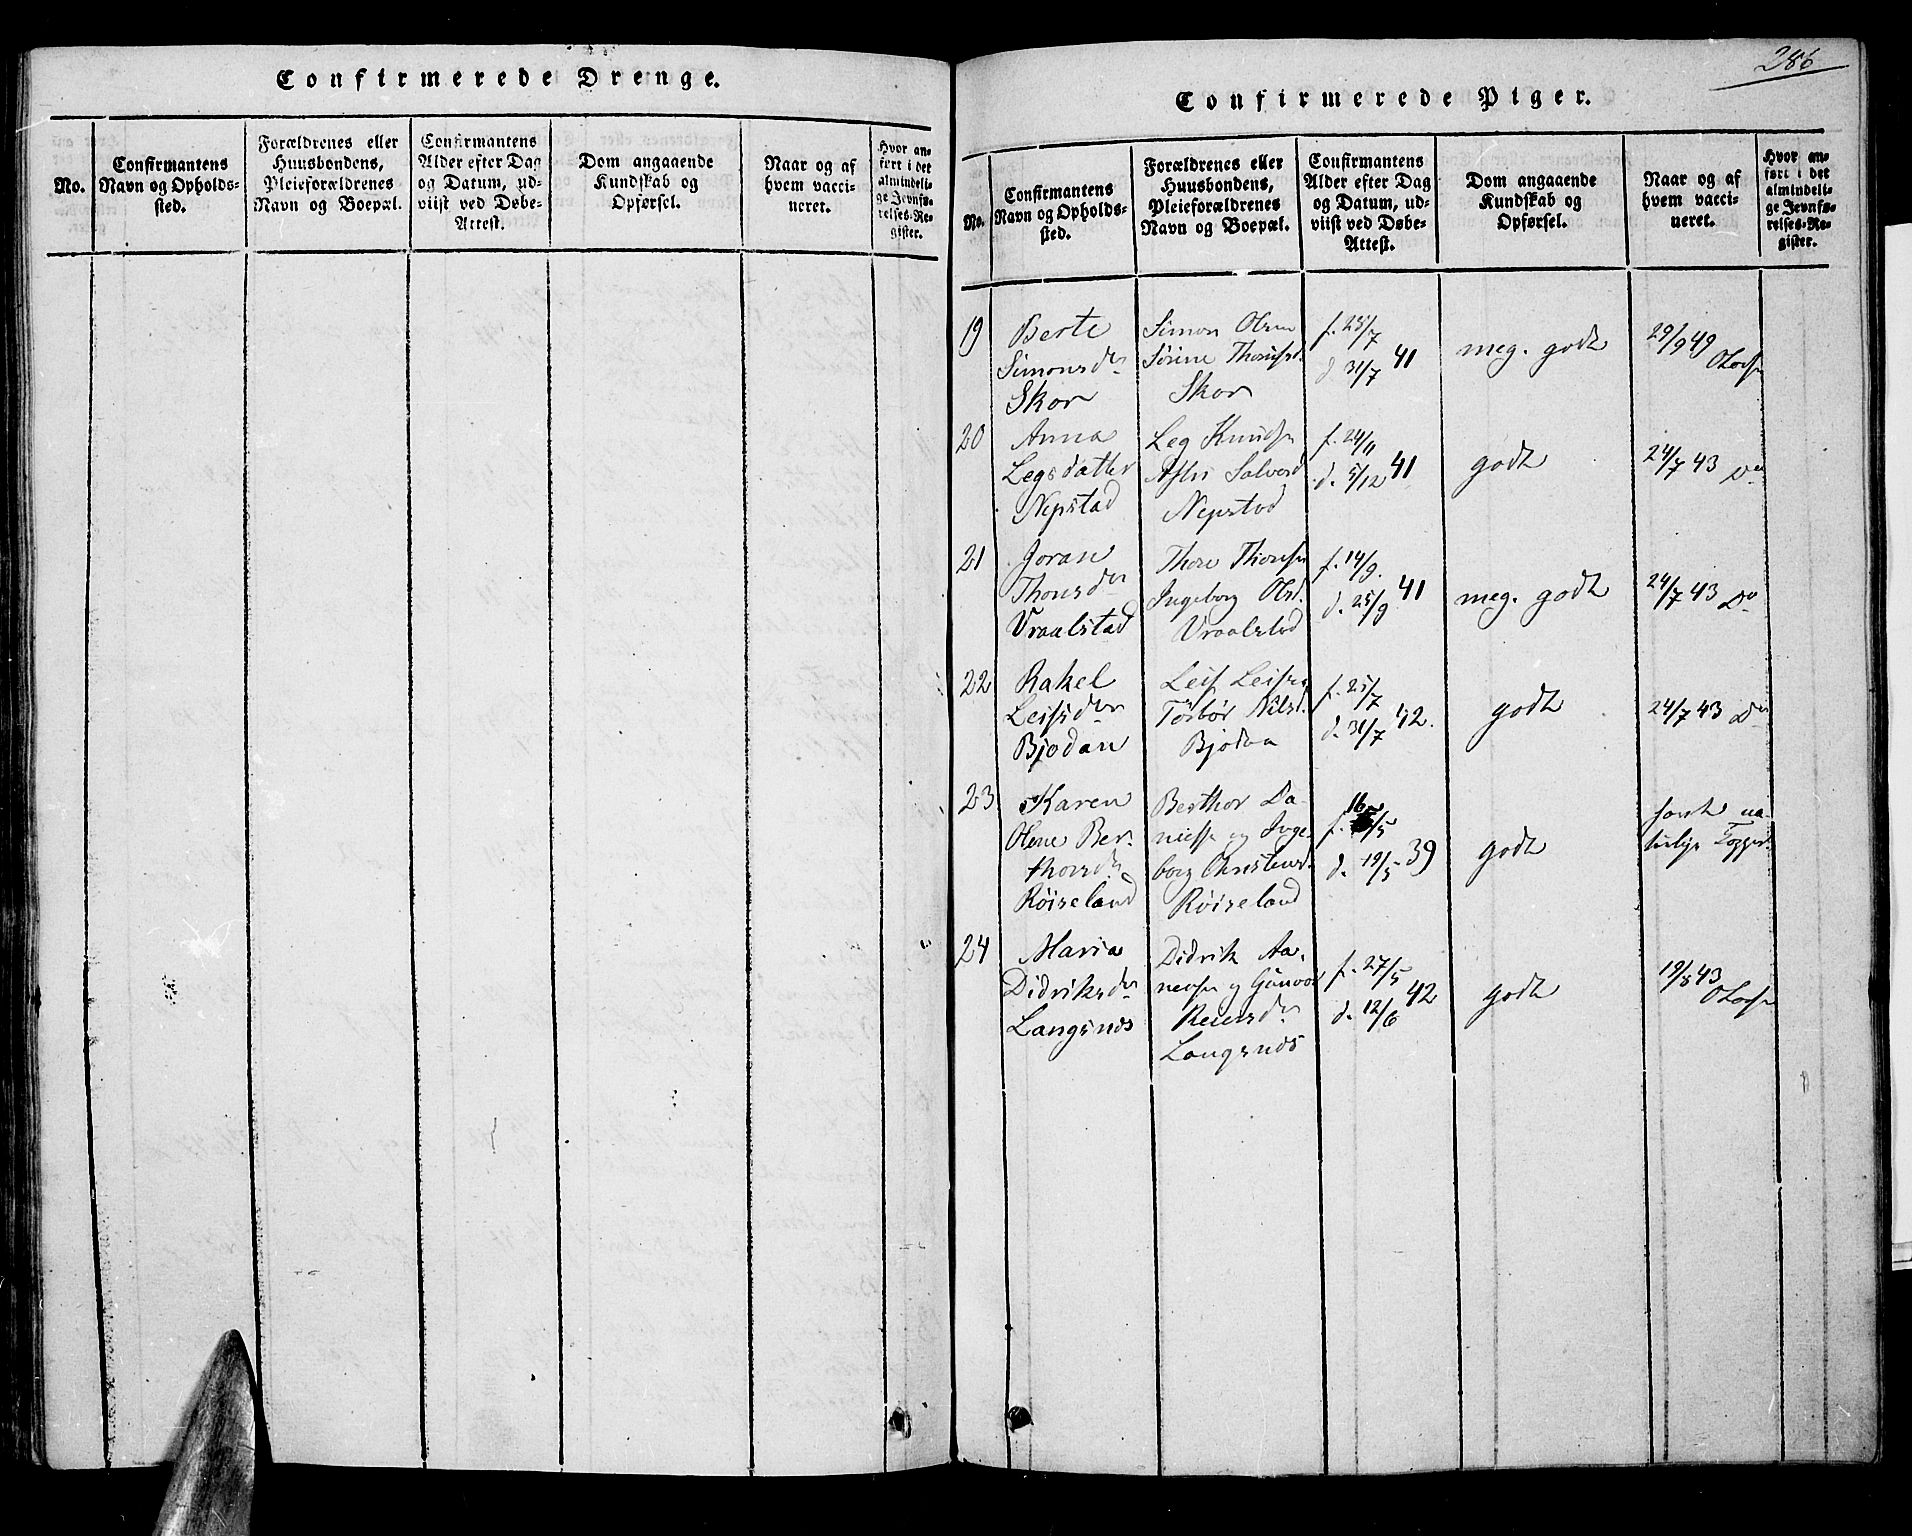 Confirmerede Drenge.
No.
Confirmantens
Navn og Opholds-
sted.
Forældrenes eller
Huusbondens,
Pleieforældrenes
Navn og Boepæl.
Confirmantens
Alder efter Dag
og Datum, ud-
viist ved Døbe-
Attest.
Dom angaaende
Kundskab og
Opførsel.
Naar og af
hvem vacci-
neret.
Hvor an-
ført i det
almindeli-
ge Jevnfø-
relses-Re-
gister.
286
Confirmerede Piger.
No.
Confirmantens
Navn og Opholds-
sted.
Forældrenes eller
Huusbondens,
Pleieforældrenes
Navn og Boepæl.
Confirmantens
Alder efter Dag
og Datum, ud-
viist ved Døbe-
Attest.
Dom angaaende
Kundskab og
Opførsel.
Naar og af
hvem vacci-
neret.
Hvor an-
ført i det
almindeli-
ge Jevnfø-
relses-Re-
gister.
19
Berte
Simonsdr
Skor
Simon Olsen
Sørine Thorsd.
Skor
f. 25/7
d 31/7 41
meg. godt
29/9 49
20
Anna
Legsdatter
Nepstad
Leg Knudsn
Salvesd
Nepstad
f. 24/11
d. 5/12 41
godt
24/7 43 Do
21
Joran
Thorsdr
Vraalstad
Thore Thorsn
Ingeborg Olsd.
Vraalstad
f. 14/9.
d. 25/9 41
meg. godt
24/7 43 Do
22
Rakel
Leifsdr
Bjodan
Leif Leifsn
Torbør Nilsd.
Bjodan
f. 25/7
d. 31/7 42.
godt
24/7 43 Do
23
Karen
Olene Ber-
thorsdr
Røiseland
Berthor Da-
nielsn og Inge-
borg Christensd.
Røiseland
f. 16/5
d. 19/5 39
godt
havt na-
turlige Kopper.
24
Maria
Didriksdr
Langsnes
Didrik Aa-
nevsn og Gunvor
Reiersdr
Langsnes
f. 27/5
d. 12/6 42
godt
19/8 43